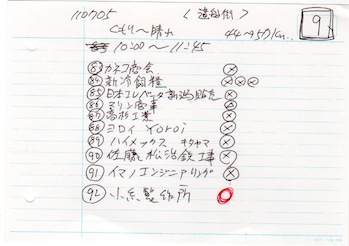 110705
9
くもり〜晴れ
44〜57km
10:00〜11:45
83 カネコ商会 ⊗
84 新冷凍 ⊗⊗⊗
85 日本エレベータ新潟販売 ⊗
86 マリン商事 ⊗
87 高杉工業 ⊗
88 ヨロイ Yoroi ⊗
89 ハイメックス キタヤマ ⊗
90 佐藤松治鉄工事 ⊗
91 イマノエンジニアリング ⊗
92 小糸製作所 ◎